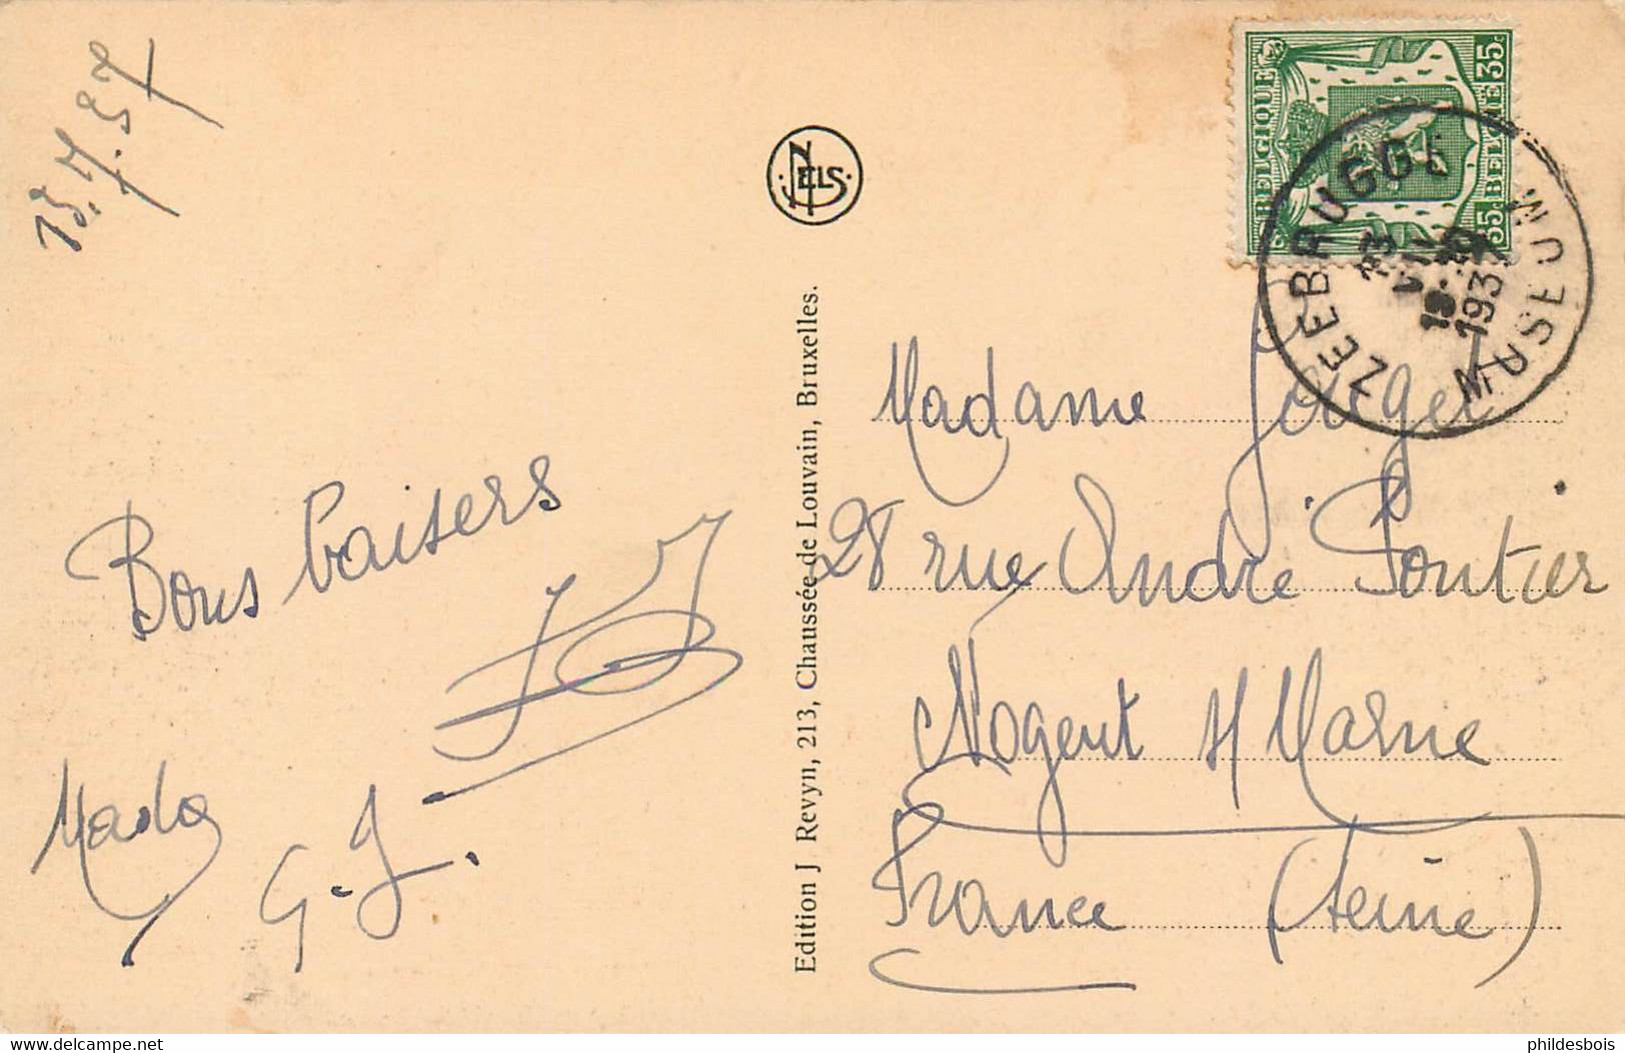 13.7.37
NELS
BELGIQUE 35c
35 BELGIË
ZEEBRUGGE
13
VII
1937
MUSEUM
Edition J Revyn, 213, Chaussée de Louvain, Bruxelles.
Bons baisers
Mado
G.J.
Madame Gouget
28 rue André Pontier
Nogent s/ Marne
France (Seine)
Mado
phildesbois